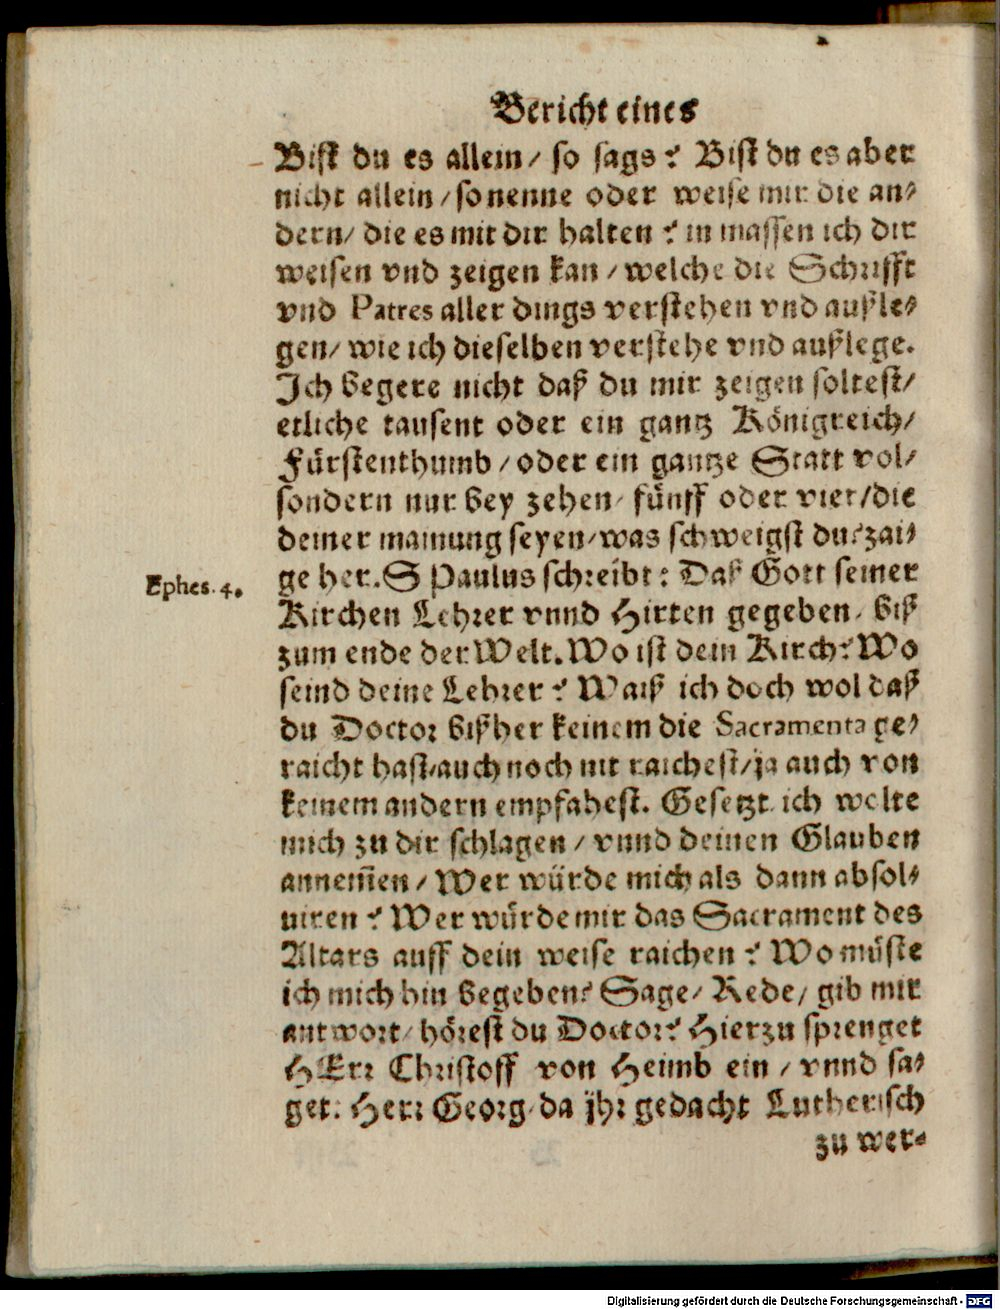 Bericht eines
Bist du es allein/ so sags? Bist du es aber
nicht allein/ so nenne oder weise mir die an⸗
dern/ die es mit dir halten? in massen ich dir
weisen vnd zeigen kan/ welche die Schrifft
vnd Patres aller dings verstehen vnd außle⸗
gen/ wie ich dieselben verstehe vnd außlege.
Ich begere nicht daß du mir zeigen soltest/
etliche tausent oder ein gantz Königreich/
Fürstenthumb/ oder ein gantze Statt vol/
sondern nur bey zehen/ fünff oder vier/ die
deiner mainung seyen/ was schweigst du? zai⸗
ge her. S Paulus schreibt: Daß Gott seiner
Ephes. 4.
Kirchen Lehrer vnnd Hirten gegeben/ biß
zum ende der Welt. Wo ist dein Kirch? Wo
seind deine Lehrer? Waiß ich doch wol daß
du Doctor bißher keinem die Sacramenta ge⸗
raicht hast/ auch noch nit raichest/ ja auch von
keinem andern empfahest. Gesetzt ich wolte
mich zu dir schlagen/ vnnd deinen Glauben
annem̃en/ Wer würde mich als dann absol⸗
uiren? Wer würde mir das Sacrament des
Altars auff dein weise raichen? Wo müste
ich mich hin begeben? Sage/ Rede/ gib mir
antwort/ hörest du Doctor? Hierzu sprenget
HErr Christoff von Heimb ein/ vnnd sa⸗
get: Herr Georg/ da jhr gedacht Lutherisch
zu wer⸗
Digitalisierung gefördert durch die Deutsche Forschungsgemeinschaft - DFG